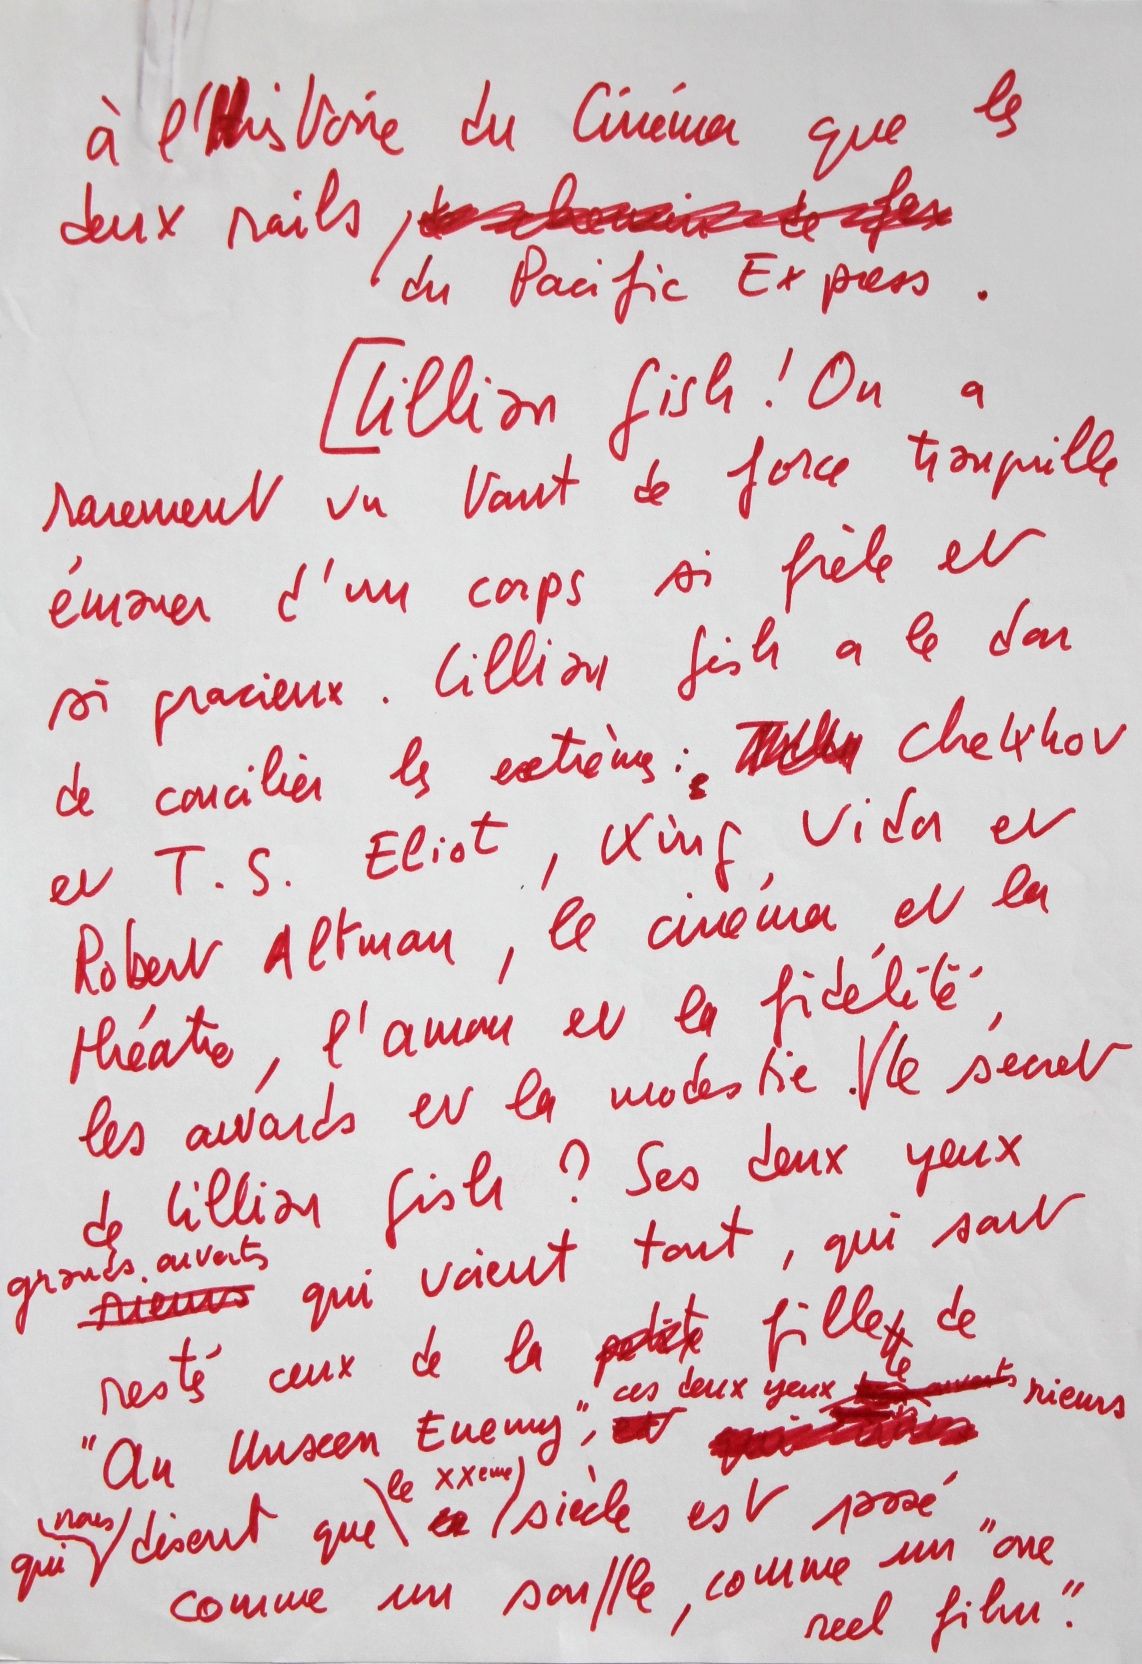 à l'Histoire du Cinéma que les
deux rails, du Pacific Express.
[Lillian Gish! On a
rarement vu tant de force tranquille
émaner d'un corps si frêle et
si gracieux. Lillian Gish a le don
de concilier les extrêmes: Chekhov
et T. S. Eliot, King Vidor et
Robert Altman, le cinéma et le
théâtre, l'amour et la fidélité,
les awards et la modestie. Le secret
de Lillian Gish? Ses deux yeux
grands ouverts qui voient tout, qui sont
resté ceux de la fillette de
"An Unseen Enemy", ces deux yeux rieurs
qui nous disent que le XXème siècle est passé
comme un souffle, comme un "one
reel film".